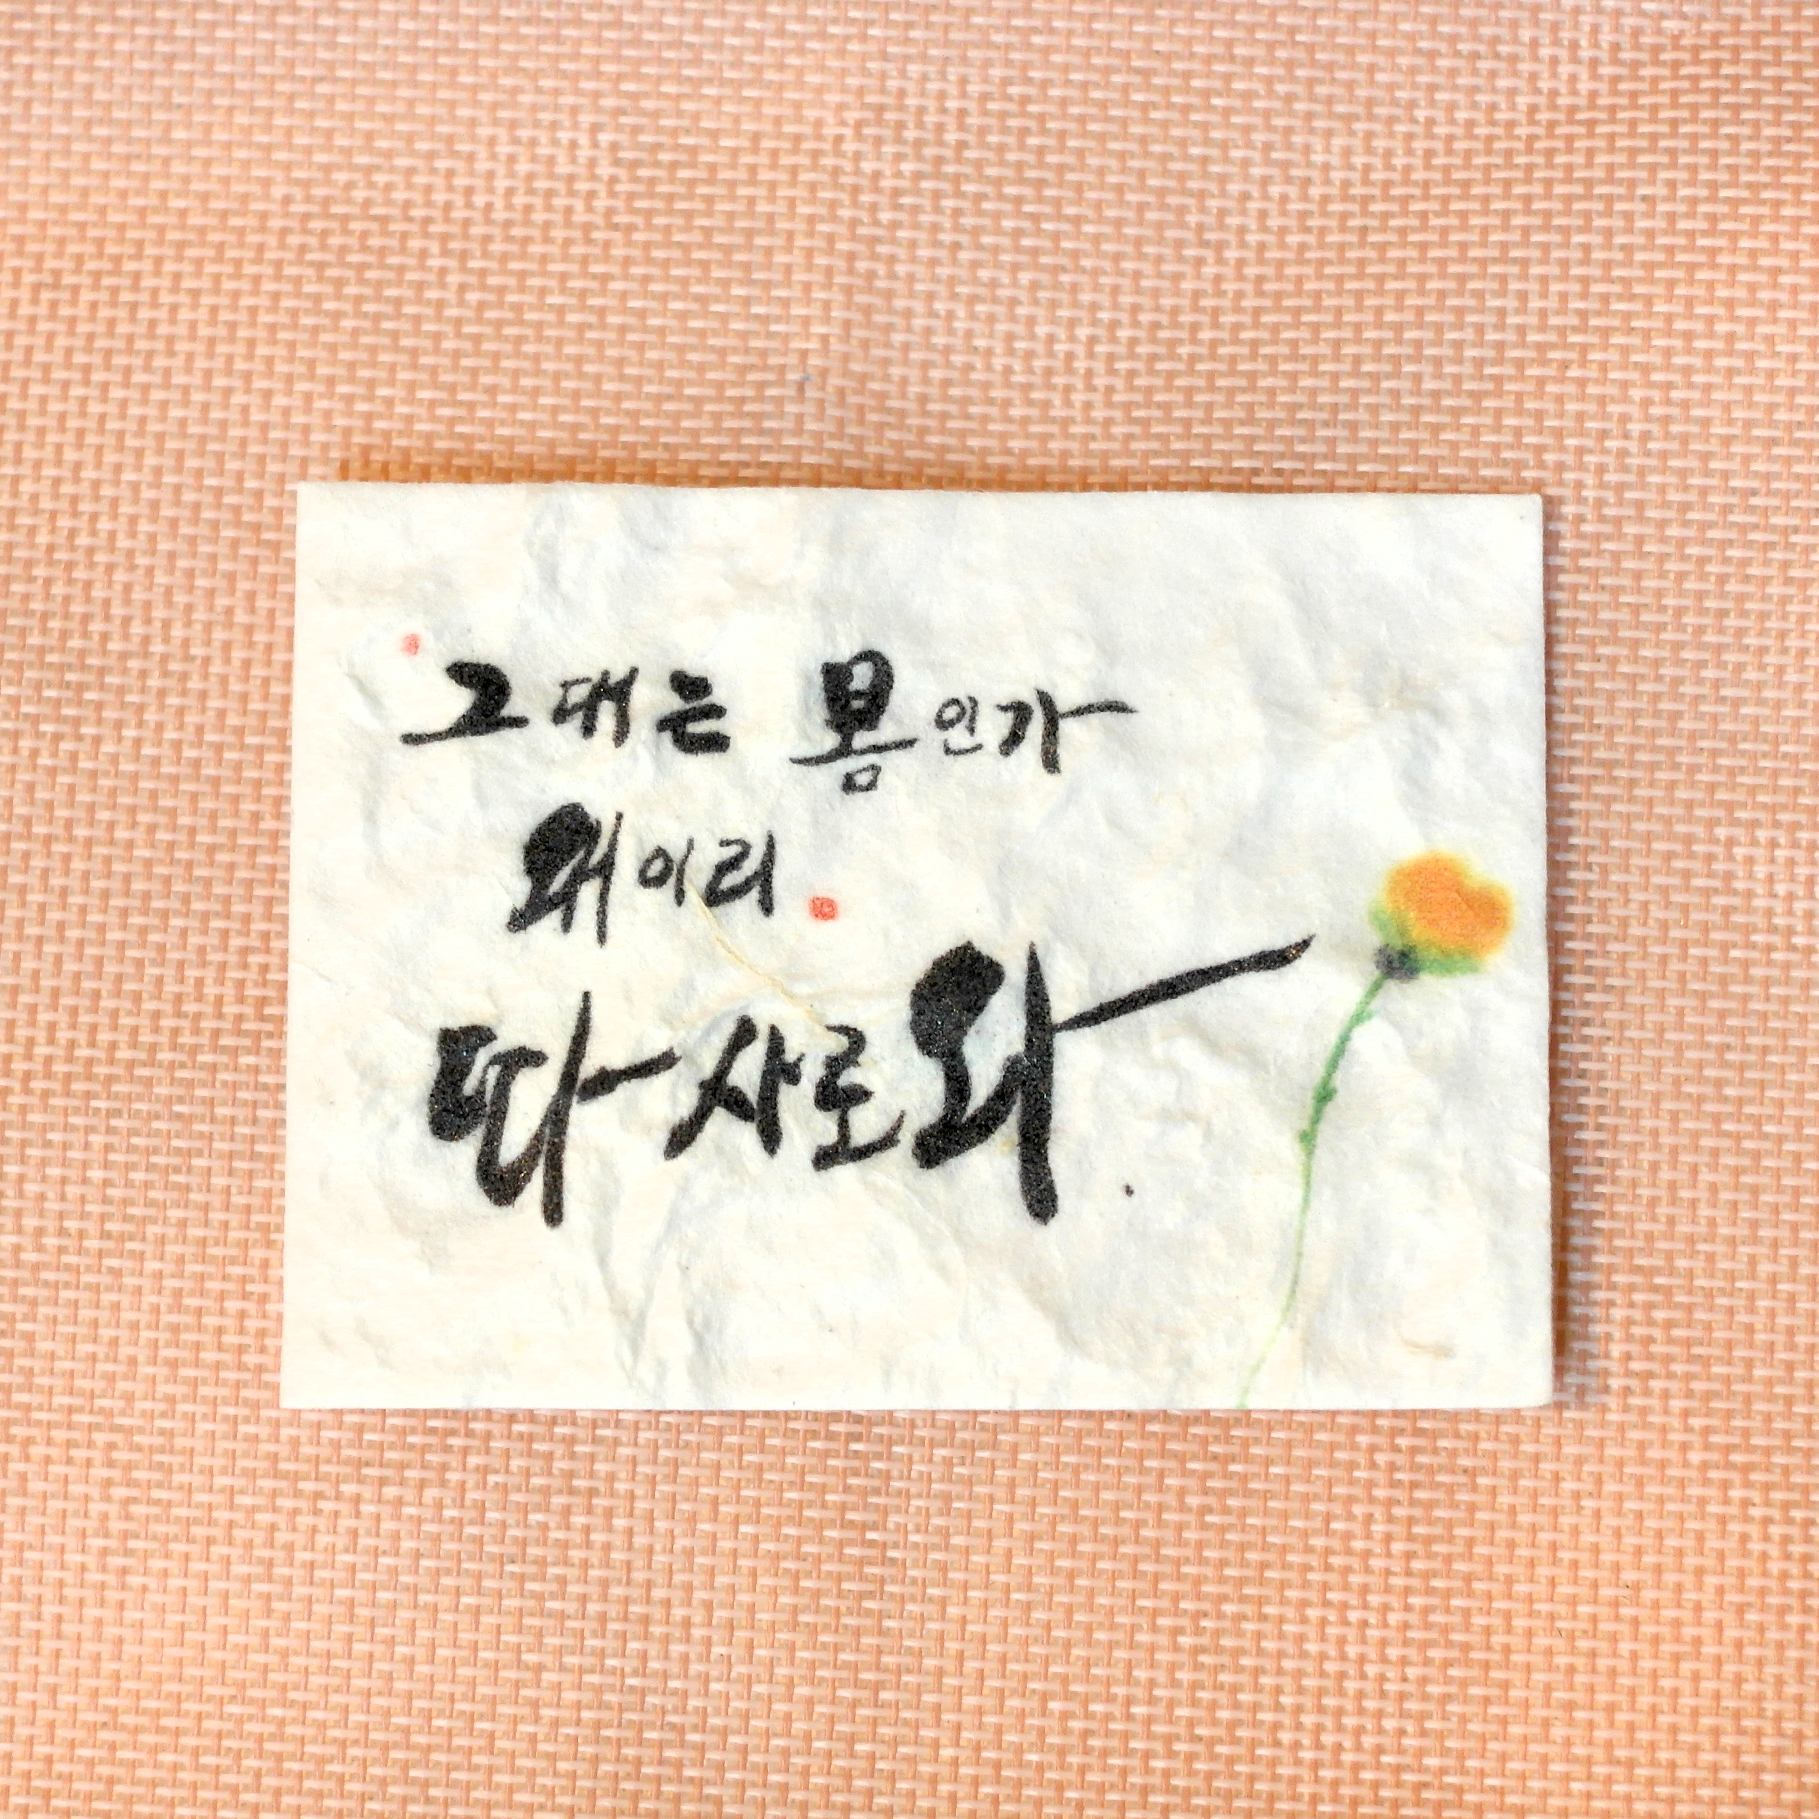 그대는 봄인가
왜이리
따사로와